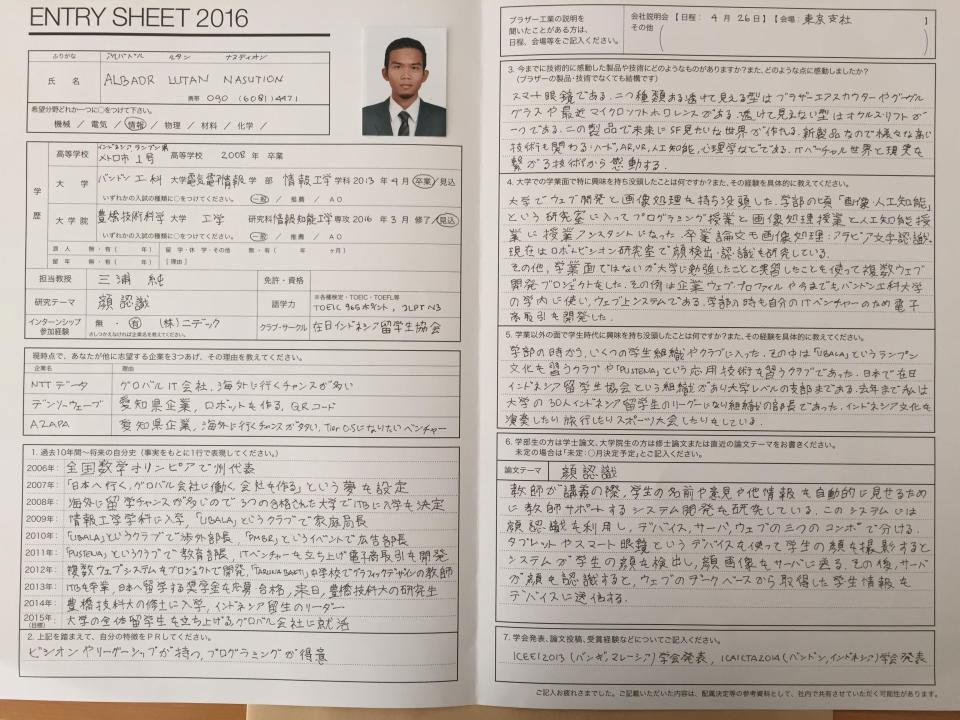 ENTRY SHEET 2016
ふりがな アルバドル ルタン ナスティオン
氏 名 ALBADR LUTAN NASUTION
携帯 090 (6081) 4471
希望分野どれか一つに○をつけて下さい。
機械 / 電気 / 情報 / 物理 / 材料 / 化学 /
学歴
高等学校 インドネシア ランプン第 メトロ市 1号 高等学校 2008 年 卒業
大 学 バンドン工科 大学 電気電子情報 学部 情報工学 学科 2013 年 4 月 卒業/見込
いずれかの入試の種類に○をつけて下さい。 一般 / 推薦 / AO
大学院 豊橋技術科学 大学 工学 研究科 情報知能工学 専攻 2016 年 3 月 修了/見込
いずれかの入試の種類に○をつけて下さい。 一般 / 推薦 / AO
浪 人 無・有( 年) 留学・休学・その他 無・有( 年 ヶ月)
留 年 無・有( 年) [理由]
担当教授 三浦 純 免許・資格
研究テーマ 顔認識 語学力 ※各種検定・TOEIC・TOEFL等
TOEIC 965ポイント, JLPT N3
インターンシップ参加経験 無・有 (株)ニデック クラブ・サークル 在日インドネシア留学生協会
おしつかえなければ企業名を教えてください。
現時点で、あなたが他に志望する企業を3つあげ、その理由を教えてください。
企業名 理由
NTTデータ グロバルIT会社, 海外に行くチャンスが多い
デンソーウェーブ 愛知県企業, ロボットも作る, QRコード
AZAPA 愛知県企業, 海外に行くチャンスが多い, Tier 0.5になりたいベンチャー
1. 過去10年間~将来の自分史(事実をもとに1行で表現してください。)
2006年: 全国数学オリンピアで州代表
2007年: 「日本へ行く, グロバル会社に働く 会社を作る」という夢を設定
2008年: 海外に留学チャンスが多いので 3つの合格された大学でITBに入学を決定
2009年: 情報工学学科に入学,「UBALA」というクラブで家庭局長
2010年: 「UBALA」というクラブで渉外部長,「PMBR」というイベントで広告部長
2011年: 「PUSTENA」というクラブで教育部長, ITベンチャーを立ち上げ電子商取引を開発
2012年: 複数ウェブシステムをプロジェクトで開発,「TARUNA BAKTI」中学校でグラフィックデザインの教師
2013年: ITBを卒業, 日本へ留学する奨学金を応募 合格, 来日, 豊橋技科大の研究生
2014年: 豊橋技科大の修士に入学, インドネシア留生のリーダー
2015年:(目標) 大学の全体留学生を立ち上げるグロバル会社に就活
2. 上記を踏まえて、自分の特徴をPRしてください。
ビジョンやリーダーシップが持つ, プログラミングが得意
ブラザー工業の説明を聞いたことがある方は、日程、会場等をご記入ください。
会社説明会【日程: 4月26日】【会場: 東京支社 】
その他
3. 今までに技術的に感動した製品や技術にどのようなものがありますか?また、どのような点に感動しましたか?
(ブラザーの製品・技術でなくても結構です)
スマート眼鏡である. 二つ種類ある透けて見える型はブラザーエアスカウターやグーグル
グラスや最近マイクロソフトホロレンスがある. 透けて見えない型はオクルスリフトが
一つである. この製品で未来にSF見たいな世界が作れる. 新製品なので様々な高い
技術も関わる: ハード, AR, VR, 人工知能, 心理学などである. ITバーチャル世界と現実を
繋がる技術から感動する.
4. 大学での学業面で特に興味を持ち没頭したことは何ですか?また、その経験を具体的に教えてください。
大学でウェブ開発と画像処理を持ち没頭した. 学部の頃「画像・人工知能」
という研究室に入ってプログラミング授業と画像処理授業と人工知能授
業に授業アシスタントになった. 卒業論文も画像処理: アラビア文字認識.
現在はロボットビジョン研究室で顔検出・認識も研究している.
その他, 学業面ではないが大学に勉強したことと実習したことを使って複数ウェブ
開発プロジェクトをした. その例は企業ウェブプロファイルや今までもバンドン工科大学
の学内に使い, ウェブシステムである. 学部の時も自分のITベンチャーのため電子
商取引も開発した.
5. 学業以外の面で学生時代に興味を持ち没頭したことは何ですか?また、その経験を具体的に教えてください。
学部の時から, いくつの学生組織やクラブに入った. その中は「UBALA」というランプン
文化も習うクラブや「PUSTENA」という応用技術も習うクラブであった. 日本で在日
インドネシア留学生協会という組織があり大学レベルの支部まである. 去年まで私は
大学の30人インドネシア留学生のリーダーになり組織の部長であった. インドネシア文化も
演奏したり旅行したりスポーツ大会したりもしている.
6. 学部生の方は学士論文、大学院生の方は修士論文または直近の論文テーマをお書きください。
未定の場合は「未定:○月決定予定」とご記入ください。
論文テーマ 顔認識
教師が講義の際, 学生の名前や意見や他情報も自動的に見せるため
に教師サポートするシステム開発も研究している. このシステムには
顔認識も利用し, デバイス, サーバ, ウェブの三つのコンポで分ける.
タブレットやスマート眼鏡というデバイスを使って学生の顔も撮影すると
システムが学生の顔も検出し, 顔画像もサーバに送る. その後, サーバ
が顔も認識すると, ウェブのデータベースから取得した学生情報も
デバイスに送信する.
7. 学会発表、論文投稿、受賞経験などについてご記入ください。
ICEEI2013 (バンギ, マレーシア) 学会発表, ICAICTA2014 (バンドン, インドネシア) 学会発表
ご記入お疲れさまでした。ご記載いただいた内容は、配属決定等の参考資料として、社内で共有させていただく可能性があります。